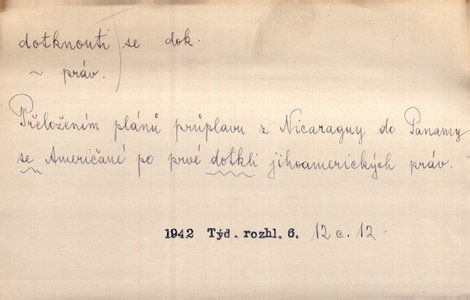 dotknouti se dok.
~ práv.
Přeložením plánů průplavu z Nicaraguy do Panamy
se Američané po prvé dotkli jihoamerických práv.
1942 Týd. rozhl. 6. 12 c. 12